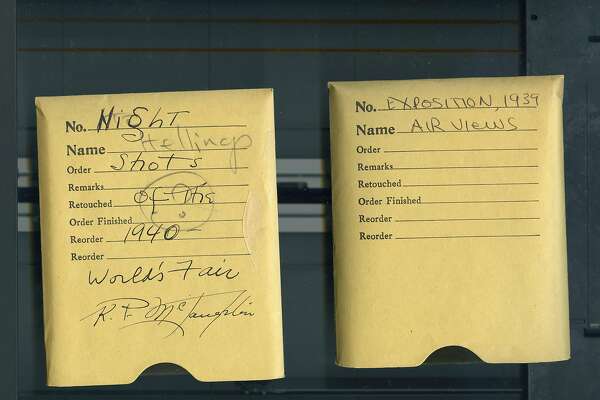 No. Night
Name Hellings
Order Shots
Remarks
Retouched of the
Order Finished
Reorder 1940
Reorder
World's Fair
R. P. McLaughlin
No. EXPOSITION, 1939
Name AIR VIEWS
Order
Remarks
Retouched
Order Finished
Reorder
Reorder